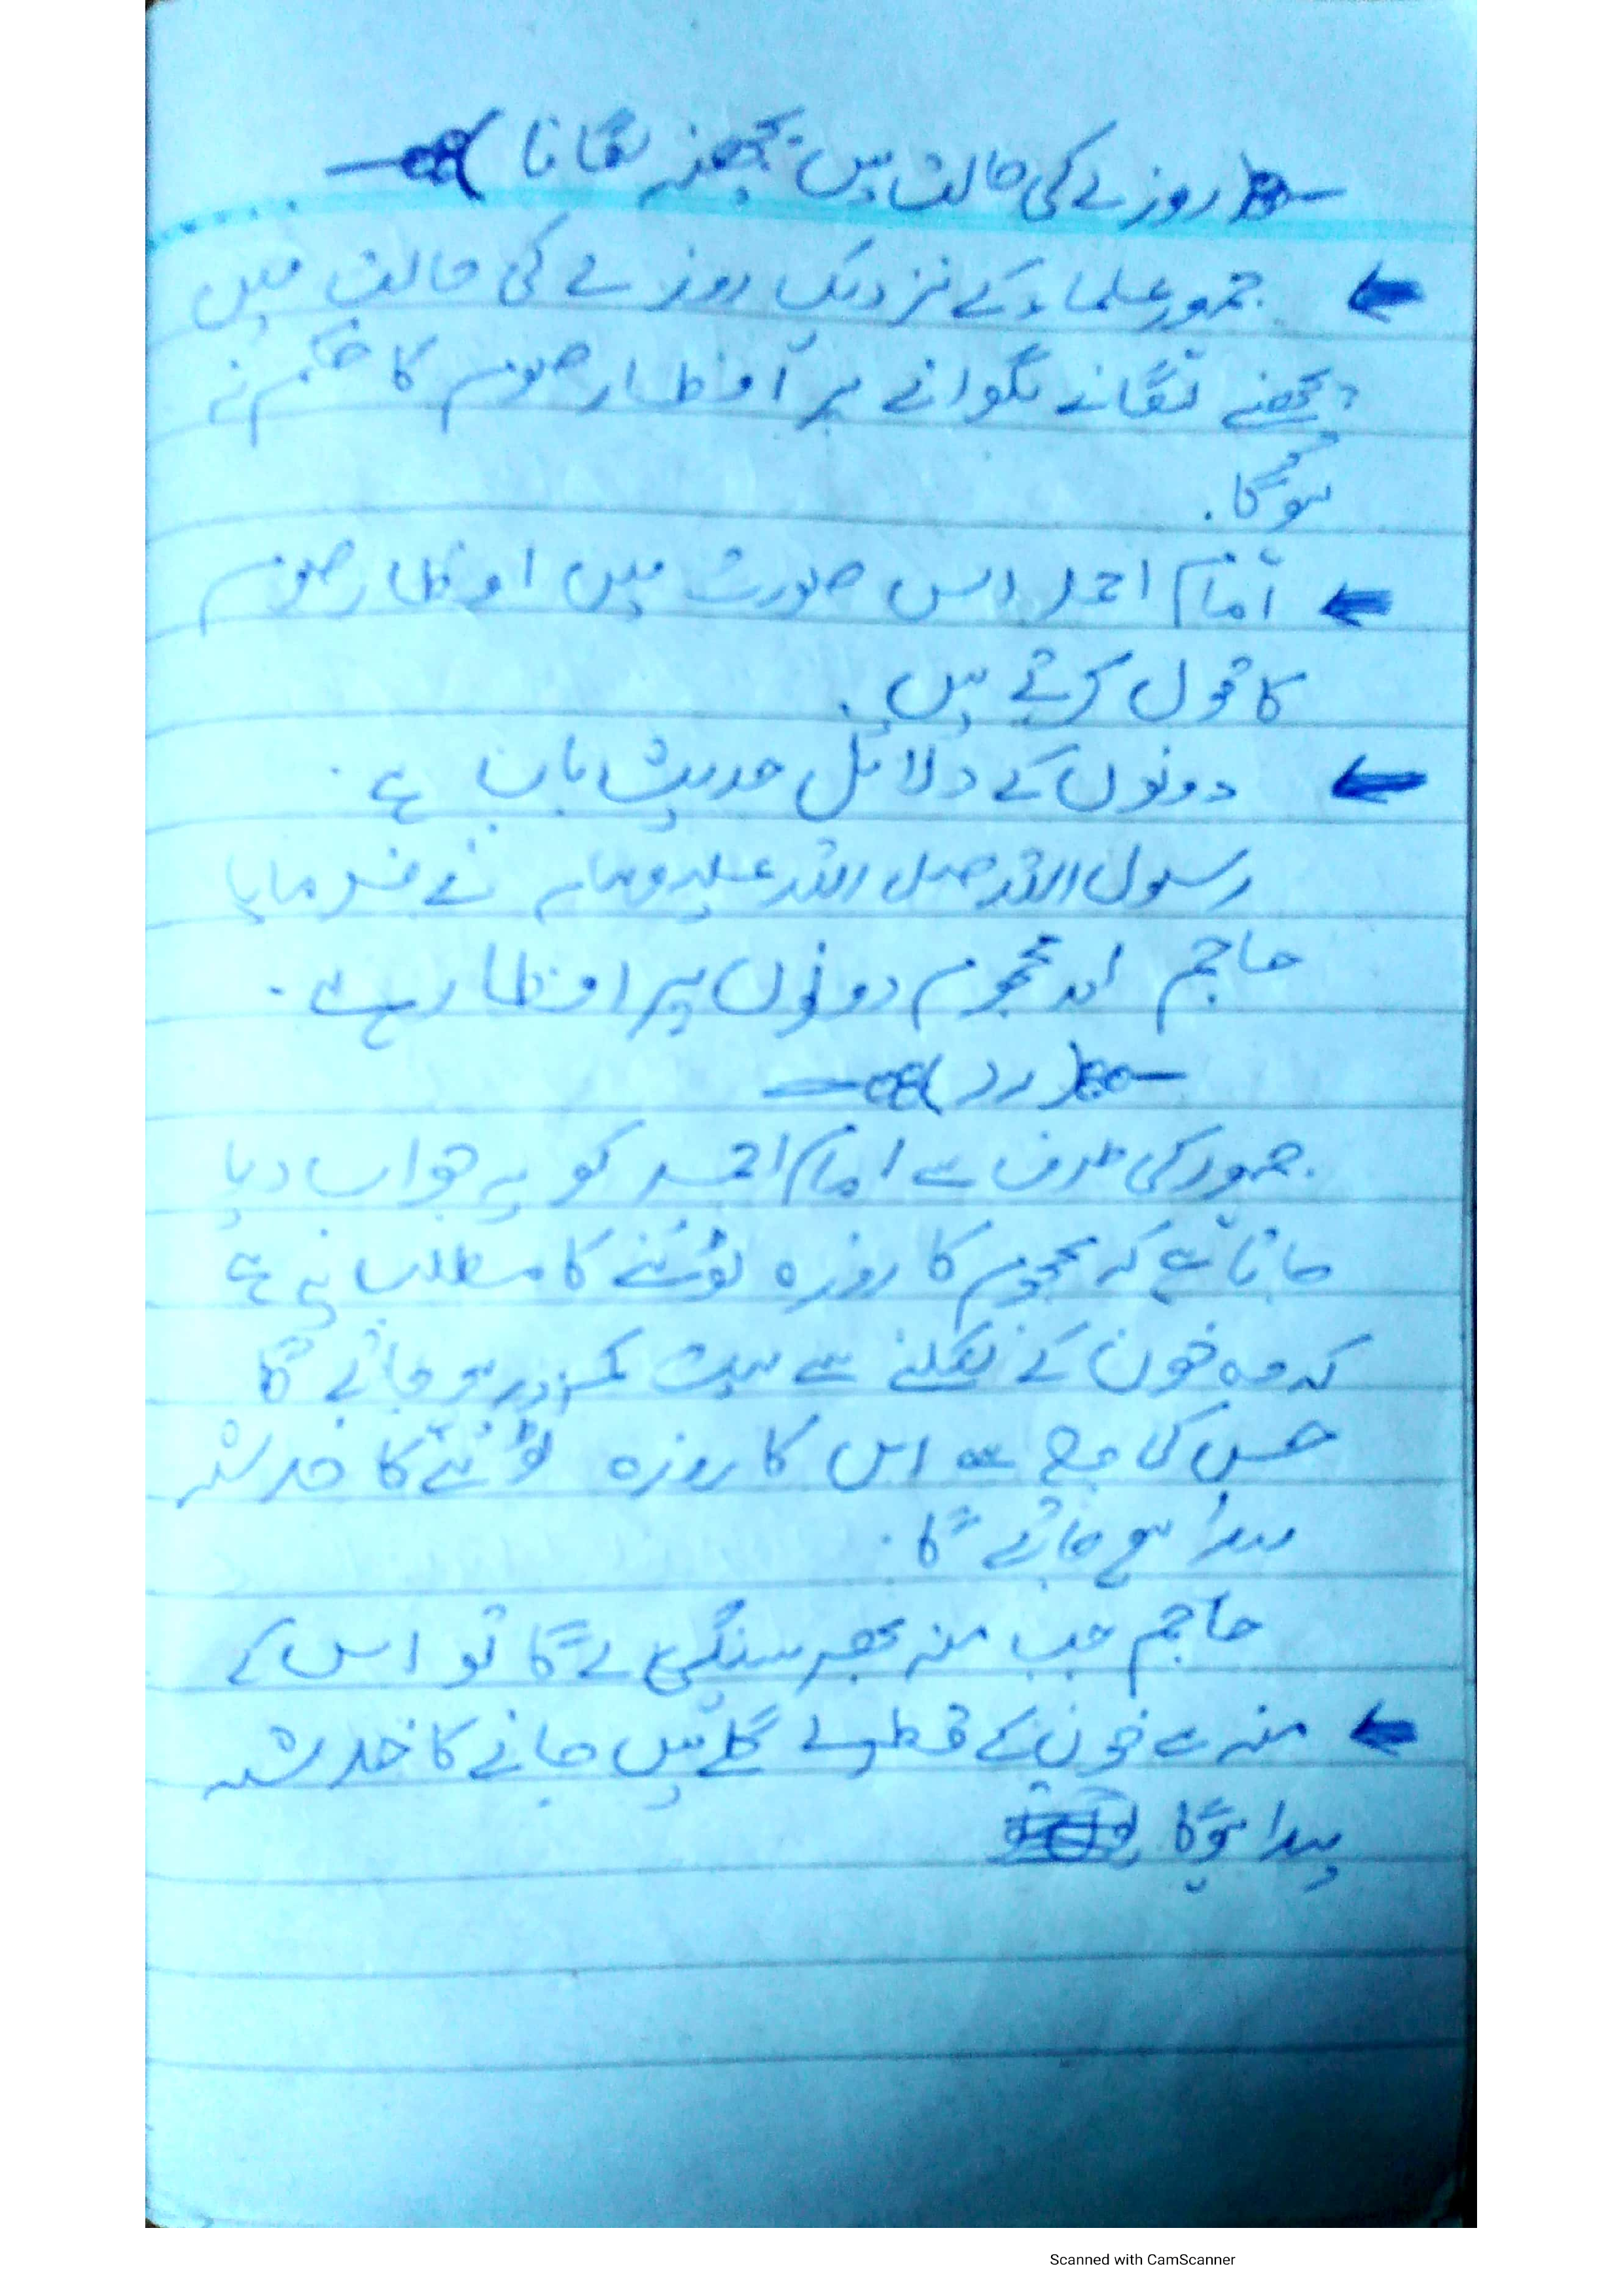 (روزے کی حالت میں پچھنے لگانا)
جمہور علماء کے نزدیک روزے کی حالت میں
پچھنے لگانے لگوانے پر افطار صوم کا حکم نہ
ہوگا۔
امام احمد اس صورت میں افطار صوم
کا قول کرتے ہیں۔
دونوں کے دلائل حدیث باب ہے۔
رسول اللہ صلی اللہ علیہ وسلم نے فرمایا
حاجم اور محجوم دونوں پر افطار ہے۔
(رد)
جمہور کی طرف سے امام احمد کو یہ جواب دیا
جاتا ہے کہ محجوم کا روزہ ٹوٹنے کا مطلب یہ ہے
کہ وہ خون کے نکلنے سے بہت کمزور ہو جائے گا
جس کی وجہ سے اس کا روزہ ٹوٹنے کا خدشہ
پیدا ہو جائے گا۔
حاجم جب منہ بھر سنگی لے گا تو اس کے
منہ سے خون کے قطرے گلے میں جانے کا خدشہ
پیدا ہوگا
Scanned with CamScanner